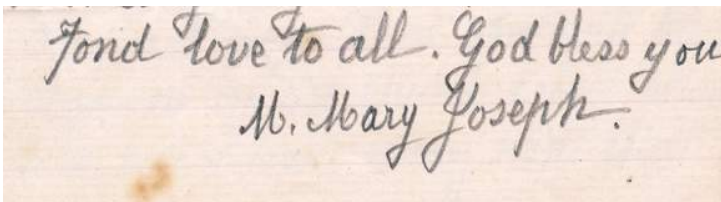 Fond love to all. God bless you
M. Mary Joseph.